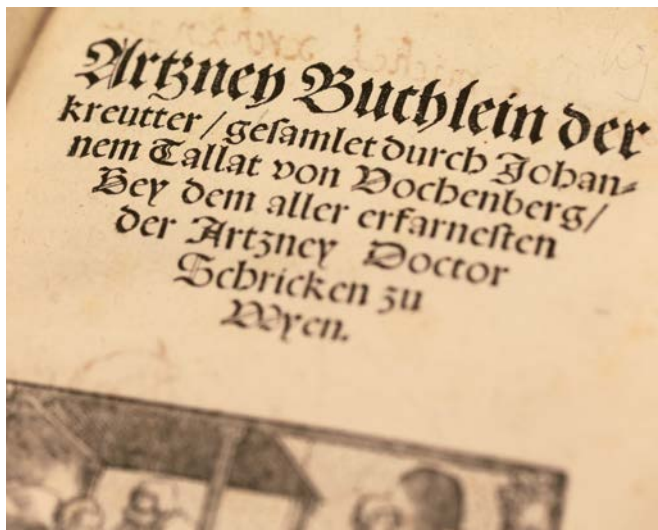 Artzney Buchlein der
kreutter / gesamlet durch Johan-
nem Tallat von Vochenberg /
Bey dem aller erfarnesten
der Artzney Doctor
Schricken zu
Wyen.